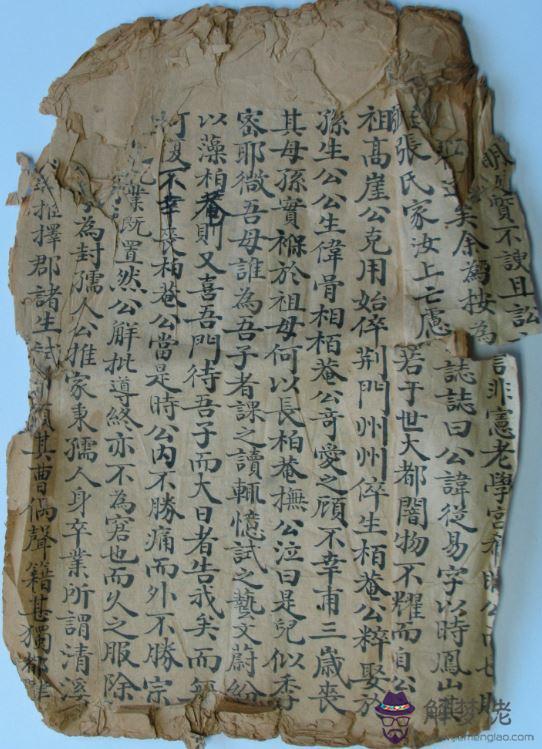 明 質不諛且訟 言非憲老學宮 公
矣余為按 為誌誌曰公諱從易字以時鳳山其
張氏家汝上亡慮若干世大都闇物不耀而自公
祖高崖公克用始倅荆門州州倅生栢菴公粹娶於
孫生公公生偉骨相栢菴公奇愛之顧不幸甫三歲喪
其母孫實褓於祖母何以長柏菴撫公泣曰是兒似季
審耶微吾母誰為吾子者課之讀輒憶試之藝文蔚紛
以藻柏菴則又喜吾門待吾子而大日者告我矣而無
何復不幸喪柏菴公當是時公内不勝痛而外不勝宗
業既置然公解批導終亦不為窘也而久之服除
為封孺人公推家秉孺人身卒業所謂清溪
推擇郡諸生試 其曹偶聲籍甚獨
解夢佬
www.jiemenglao.com